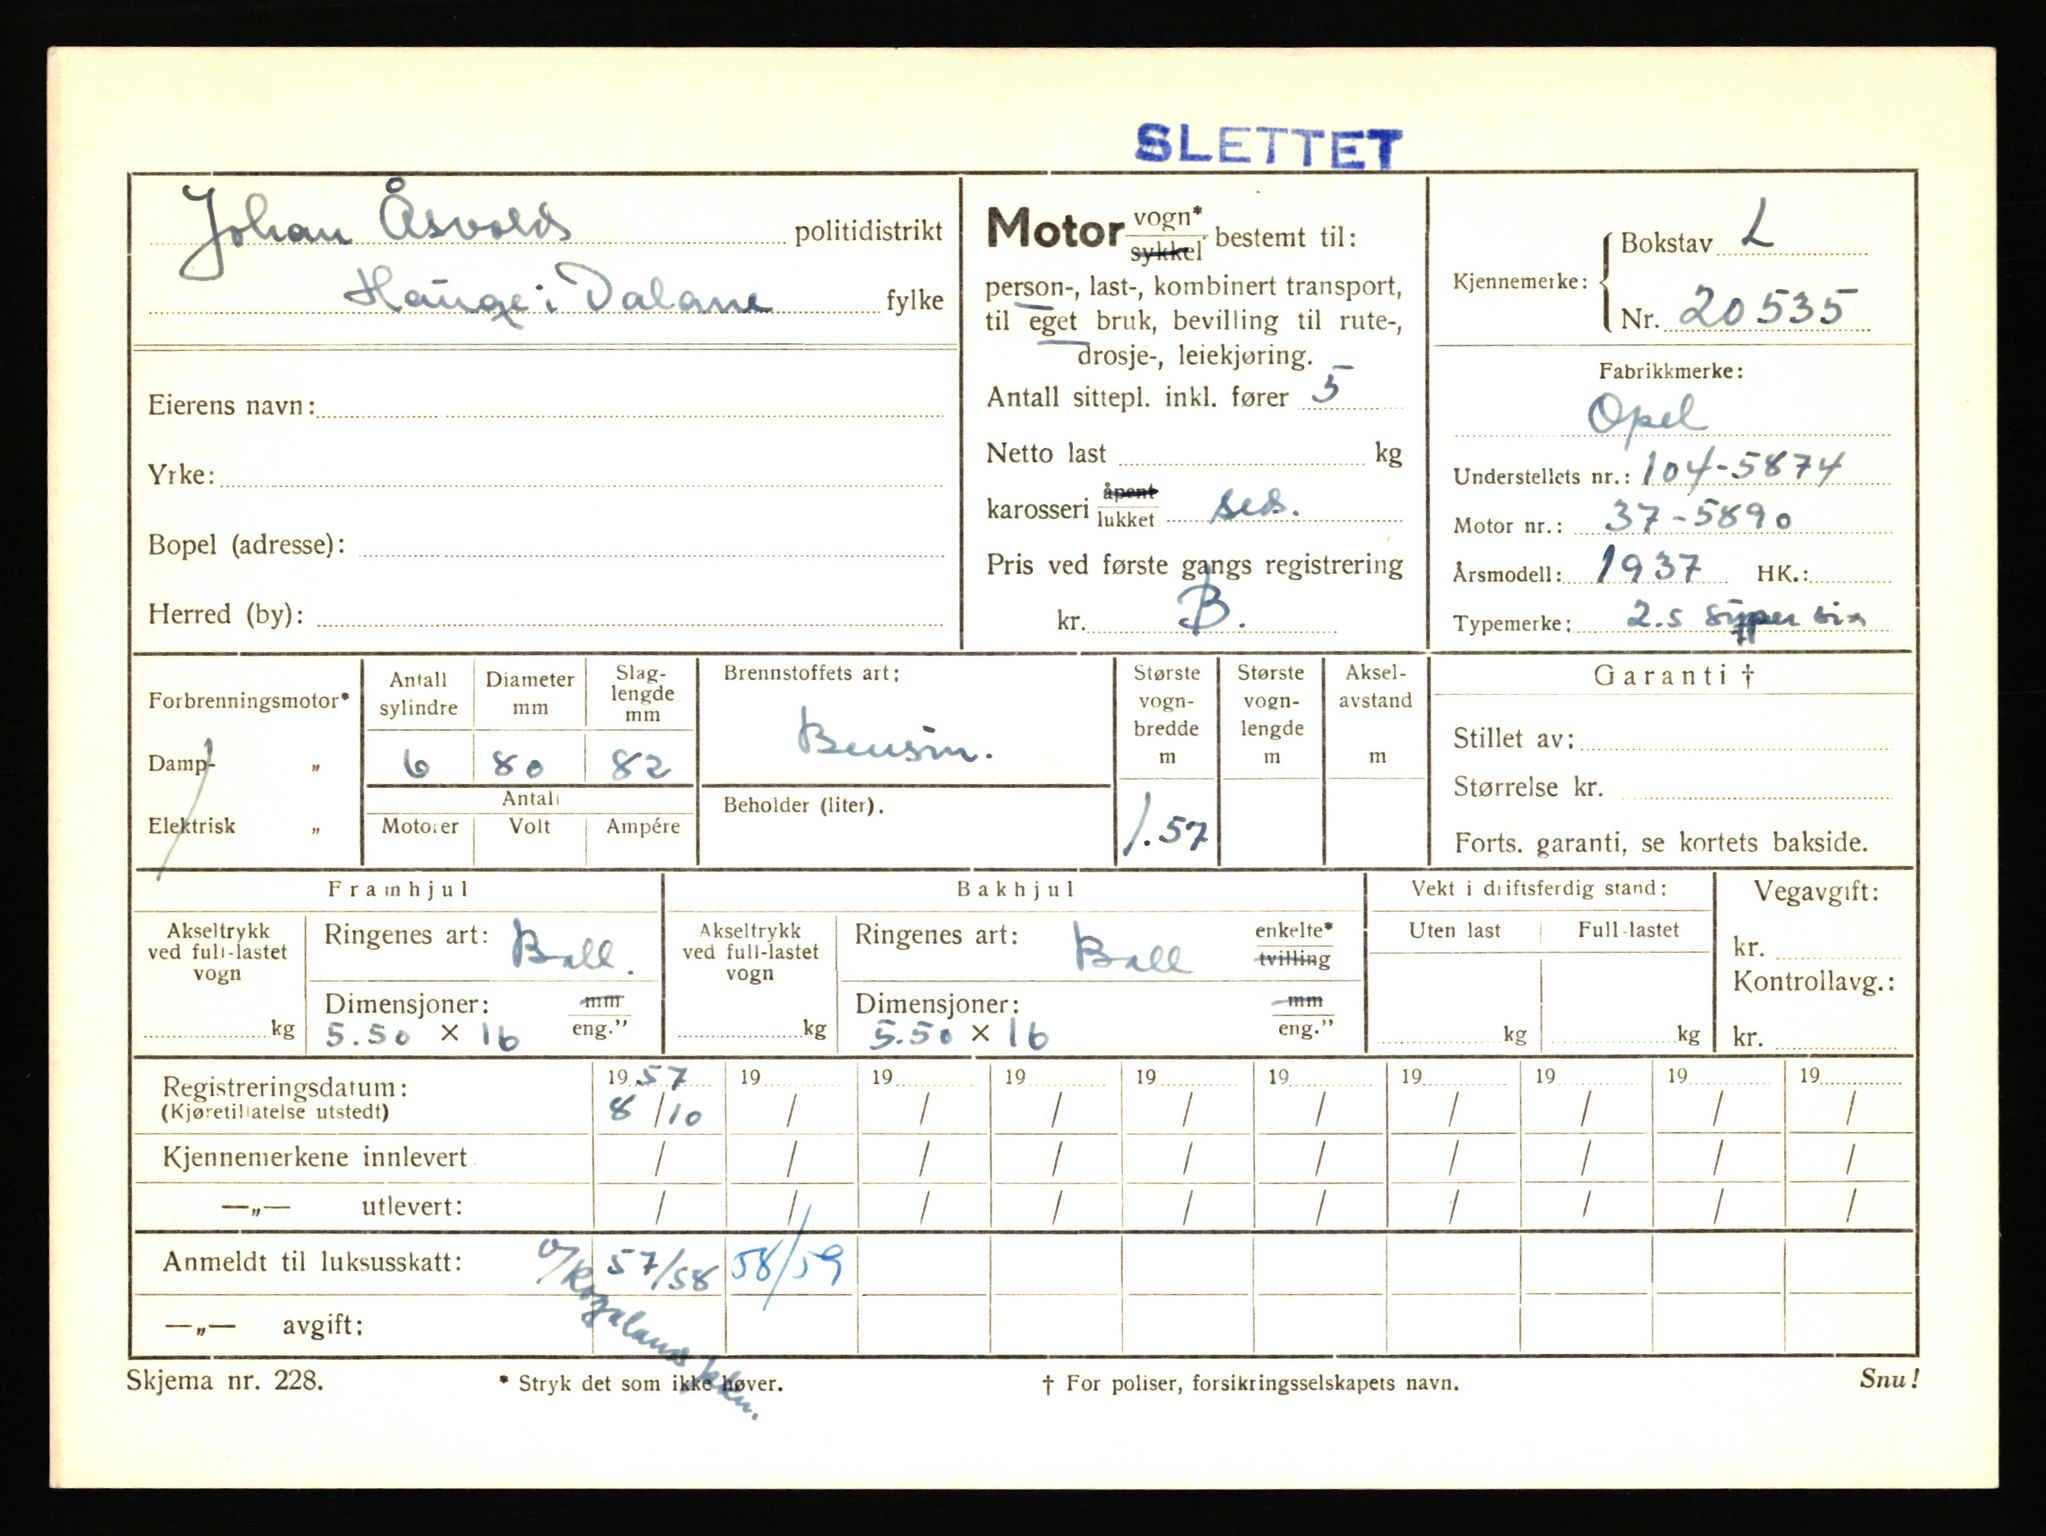 SLETTET
Johan Åsvold politidistrikt
Hauge i Dalane fylke
Eierens navn:
Yrke:
Bopel (adresse):
Herred (by):
Motor vogn* sykkel bestemt til:
person-, last-, kombinert transport,
til eget bruk, bevilling til rute-,
drosje-, leiekjøring.
Antall sittepl. inkl. fører 5
Netto last kg
karosseri åpent lukket sed.
Pris ved første gangs registrering
kr. B.
Kjennemerke: Bokstav L
Nr. 20535
Fabrikkmerke:
Opel
Understellets nr.: 104-5874
Motor nr.: 37-5890
Årsmodell: 1937 HK.:
Typemerke: 2.5 Super six
Forbrenningsmotor*
Damp- „
Elektrisk „
Antall sylindre
Diameter mm
Slag-lengde mm
6 80 82
Antall
Motorer Volt Ampére
Brennstoffets art:
Bensin.
Beholder (liter).
Største vogn-bredde m
1.57
Største vogn-lengde m
Aksel-avstand m
Garanti †
Stillet av:
Størrelse kr.
Forts. garanti, se kortets bakside.
Framhjul
Akseltrykk ved full-lastet vogn
kg
Ringenes art: Ball.
Dimensjoner: mm
5.50 x 16 eng.”
Bakhjul
Akseltrykk ved full-lastet vogn
kg
Ringenes art: Ball enkelte* tvilling
Dimensjoner: mm
5.50 x 16 eng.”
Vekt i driftsferdig stand:
Uten last Full-lastet
kg kg
Vegavgift:
kr.
Kontrollavg.:
kr.
Registreringsdatum: 1957 19 19 19 19 19 19 19 19 19
(Kjøretillatelse utstedt) 8/10 / / / / / / / / /
Kjennemerkene innlevert / / / / / / / / / /
—„— utlevert: / / / / / / / / / /
Anmeldt til luksusskatt: 57/58 58/59
o/Rogalands
—„— avgift:
Skjema nr. 228.
* Stryk det som ikke høver.
† For poliser, forsikringsselskapets navn.
Snu!